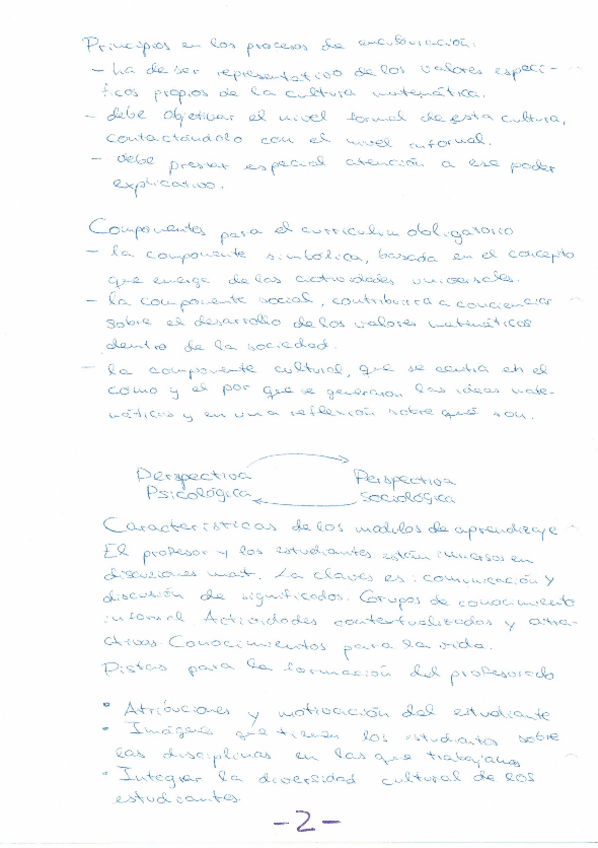 Principios en los procesos de enculturación.
- ha de ser representativo de los valores especí-
ficos propios de la cultura matemática.
- debe objetivar el nivel formal de esta cultura,
contactándolo con el nivel informal.
- debe prestar especial atención a ese poder
explicativo.
Componentes para el curriculum obligatorio
- la componente simbólica, basada en el concepto
que emerge de las actividades universales.
- la componente social, contribuira a concienciar
sobre el desarrollo de los valores matemáticos
dentro de la sociedad.
- la componente cultural, que se centra en el
como y el por que se generaron las ideas mate-
máticas y en una reflexión sobre qué son.
Perspectiva Perspectiva
Psicológica Sociológica
Características de los modelos de aprendizaje
El profesor y los estudiantes están inmersos en
discusiones mat. La claves es: comunicación y
discusión de significados. Grupos de conocimiento
informal Actividades contextualizadas y atra-
ctivas. Conocimientos para la vida.
Pistas para la formación del profesorado
• Atribuciones y motivación del estudiante
• Imágenes que tienen los estudiantes sobre
las disciplinas en las que trabajamos
• Integrar la diversidad cultural de los
estudiantes.
-2-